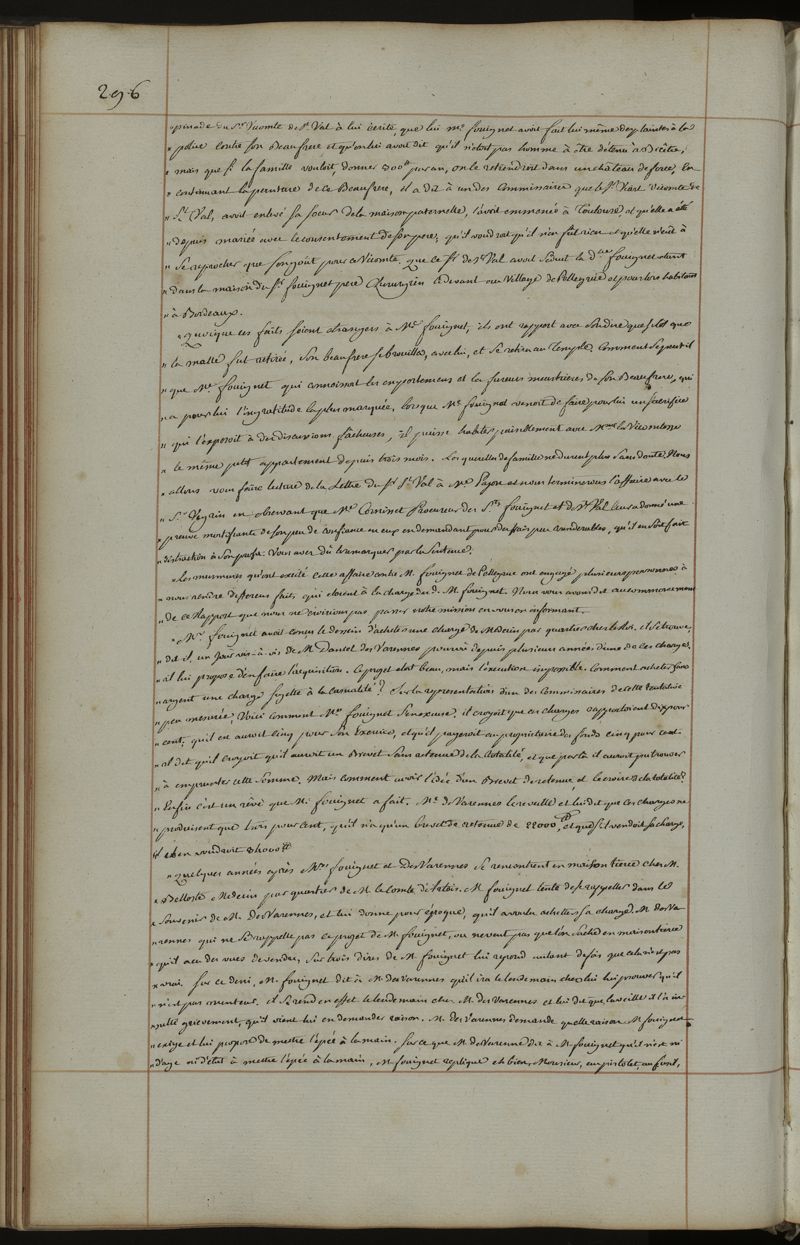 296
" pinade du Sr. Vicomte de St. Val à lui écrite, que lui mr. fouignet avoit fait lui même des plaintes à la
" police contre son Beaufrere et qu'on lui avoit dit qu'il n'etoit pas homme à être detenu a Bicêtre,
" mais que si la famille vouloit donner 300tt par an, on le retiendroit dans un château de force, En
" continuant la peinture de ce Beaufrere, il a dit à un des Commissaires que le Sr. Viart Vicomte de
" St. Val, avoit enlevé sa soeur de la maison paternelle, l'avoit emmenée à Toulouse et qu'elle a été
" depuis mariée avec le consentement de son pere, qu'il voudroit qu'il n'en fût rien et qu'elle n'eut à
" Se reprocher que son goût pour ce Vicomte, que ce Sr. de St Val avoit séduit la Dlle fouignet étant
" dans la maison du Sr. fouignet pere Chirurgien cidevant au Village de Pellegrüe et pour lors habitant
" à Bordeaux.
" Quoique ces faits soient étrangers à Mr. fouignet, ils ont rapport avec ce qu'il dit que
" la malle fut retirée, Son beaufrere se brouilla avec lui, et se retira au Temple, Comment se peut il
" que Mr. fouignet qui connoissoit les emportemens et les fureurs meurtrieres de son Beaufrere, qui
" a pour lui l'ingratitude la plus marquée, lorsque Mr. fouignet venoit de faire pour lui un sacrifice
" qui l'exposoit à des discussions fâcheuses, il puisse habiter paisiblement avec Mme. la Vicomtesse
" le même petit appartement depuis trois mois. Les querelles de famille ne durent plus sans doute. Nous
" allons vous faire lecture de la Lettre du Sr. St. Val à Mr. Pajon et nous terminerons l'affaire avec le
" Sr. Veyrin en observant que Me. Cominet Procureur des Srs fouignet et de St. Val leur a donné une
" preuve mortifiante de son peu de confiance en eux en demandant pour des frais peu considerables, qu'il en soit fait
" distraction à son profit. Vous avez dû le remarquer par la Sentence.
" Les murmures qu'ont excité cette affaire contre M. fouignet de Pellegrue ont engagé plusieurs personnes à
" nous rendre differens faits qui étoient à la charge du d. M. fouignet. Nous vous avons dit au commencement
" de ce Rapport que nous ne croirions pas passer notre mission en nous en informant.
" Mr. fouignet avoit concu le dessein d'acheter une charge de Médecin par quartier chez le Roi. il se trouve,
" dit il, un jour vis-à-vis de M. Dansel des Varennes pourvû depuis plusieurs années d'une de ces charges,
" il lui propose d'en faire l'acquisition. Ce projet etoit beau, mais l'execution impossible. Comment acheter sans
" argent une charge sujette à la Casualité? Sur la representation d'un des Commissaires de cette tentative
" peu mesurée, Voici comment Mr. fouignet s'en excuse, il croyoit que ces charges rapportoient dix pour
" cent, qu'il en auroit cinq pour son Exercice, et qu'il payeroit au proprietaire du fonds cinq pour cent
" il dit qu'il croyoit qu'il auroit un Brevet Sans retenue de la totalité, et que par là il auroit pu trouver
" à emprunter cette somme. Mais comment avoir l'idée d'un Brevet de retenue, et le croire de la totalité?
" Enfin c'est un rêve que M. fouignet a fait. Mr. de Varennes le reveille et lui dit que ces charges ne
" produisent que trois pour Cent, qu'il n'a qu'un brevet de retenue de 22000tt, et que s'il vendoit sa charge,
il en voudroit 34000tt
" Quelques années après Mrs fouignet et Des Varennes Se rencontrent en maison tierce chez M.
" Belloste Medecin par quartier de M. le Comte d'Artois. M. fouignet tente de se rappeller dans le
" Souvenir de M. Des Varennes, et lui donne pour époque, qu'il a voulu acheter sa charge. M. des Va
" rennes qui ne se rappelle pas ce projet de M. fouignet, ou ne veut pas que l'on sache en maison tierce
" qu'il a eu des vues de vendre, sur trois dires de M. fouignet lui repond autant de fois que cela n'est pas
" vrai. Sur ce deni, M. fouignet dit à M. des Varennes qu'il ira le lendemain chez lui lui prouver qu'il
" n'est pas menteur. il se rend en effet le lendemain chez M. des Varennes et lui dit que la veille il l'a in
" sulté grievement, qu'il vient lui en demander raison. M. des Varennes demande quelle raison M. fouignet
" exige et lui propose de mettre l'épée à la main. Sur ce que M. des Varennes dit à M. fouignet qu'il n'est ni
" d'age ni d'état à mettre l'épée à la main, M. fouignet replique eh bien, Monsieur, un pistolet, un fusil,